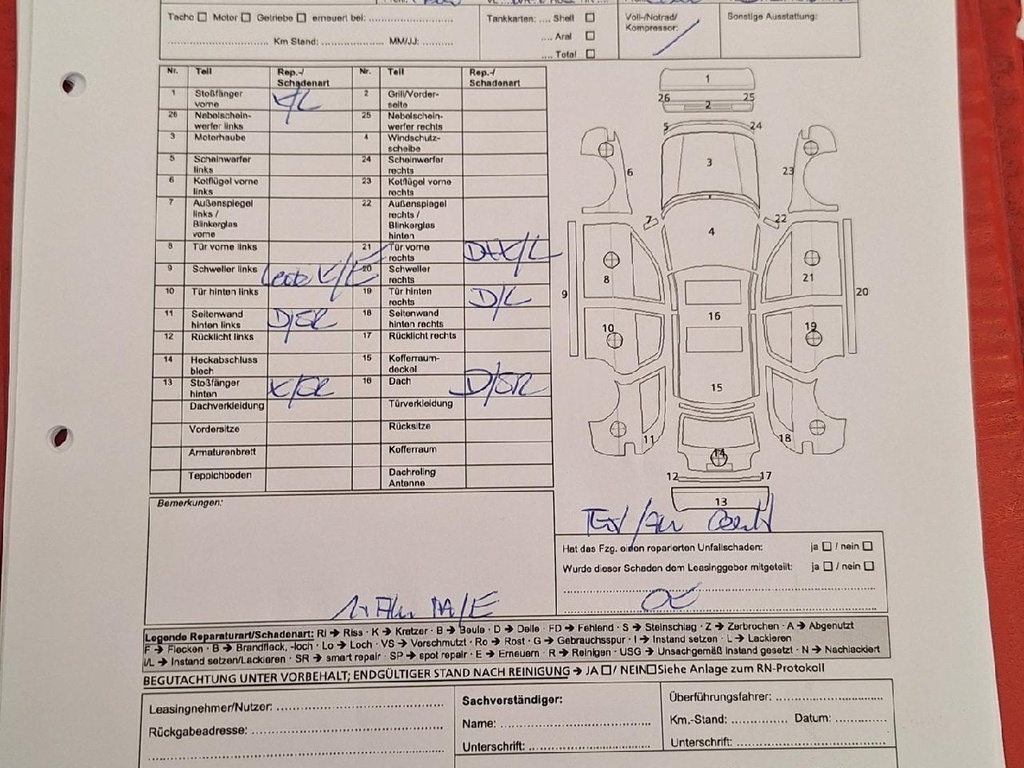 Tacho ☐ Motor ☐ Getriebe ☐ erneuert bei: ....................
.................... Km Stand: .................... MM/JJ: ........
Tankkarten: .... Shell ☐
.... Aral ☐
.... Total ☐
Voll-/Notrad/
Kompressor:
Sonstige Ausstattung:
Nr. Teil Rep.-/Schadenart Nr. Teil Rep.-/Schadenart
1 Stoßfänger vorne K/L 2 Grill/Vorderseite
26 Nebelscheinwerfer links 25 Nebelscheinwerfer rechts
3 Motorhaube 4 Windschutzscheibe
5 Scheinwerfer links 24 Scheinwerfer rechts
6 Kotflügel vorne links 23 Kotflügel vorne rechts
7 Außenspiegel links / Blinkerglas vorne 22 Außenspiegel rechts / Blinkerglas hinten
8 Tür vorne links 21 Tür vorne rechts
9 Schweller links 20 Schweller rechts
10 Tür hinten links 19 Tür hinten rechts D/L
11 Seitenwand hinten links D/SR 18 Seitenwand hinten rechts
12 Rücklicht links 17 Rücklicht rechts
14 Heckabschlussblech 15 Kofferraumdeckel
13 Stoßfänger hinten K/SR 16 Dach D/SR
Dachverkleidung Türverkleidung
Vordersitze Rücksitze
Armaturenbrett Kofferraum
Teppichboden Dachreling Antenne
1
26 25
2
5 24
3
6 23
7 22
4
8 21
9 20
16
10 19
15
11 18
14
12 17
13
Bemerkungen:
Hat das Fzg. einen reparierten Unfallschaden: ja ☐ / nein ☐
Wurde dieser Schaden dem Leasinggeber mitgeteilt: ja ☐ / nein ☐
Legende Reparaturart/Schadenart: RI → Riss · K → Kratzer · B → Beule · D → Delle · FD → Fehlend · S → Steinschlag · Z → Zerbrochen · A → Abgenutzt
F → Flecken · B → Brandfleck, -loch · Lo → Loch · VS → Verschmutzt · Ro → Rost · G → Gebrauchsspur · I → Instand setzen · L → Lackieren
I/L → Instand setzen/Lackieren · SR → smart repair · SP → spot repair · E → Erneuern · R → Reinigen · USG → Unsachgemäß instand gesetzt · N → Nachlackiert
BEGUTACHTUNG UNTER VORBEHALT; ENDGÜLTIGER STAND NACH REINIGUNG → JA ☐/ NEIN☐ Siehe Anlage zum RN-Protokoll
Leasingnehmer/Nutzer: ....................
Rückgabeadresse: ....................
Sachverständiger:
Name: ....................
Unterschrift: ....................
Überführungsfahrer: ....................
Km.-Stand: ............ Datum: ............
Unterschrift: ....................